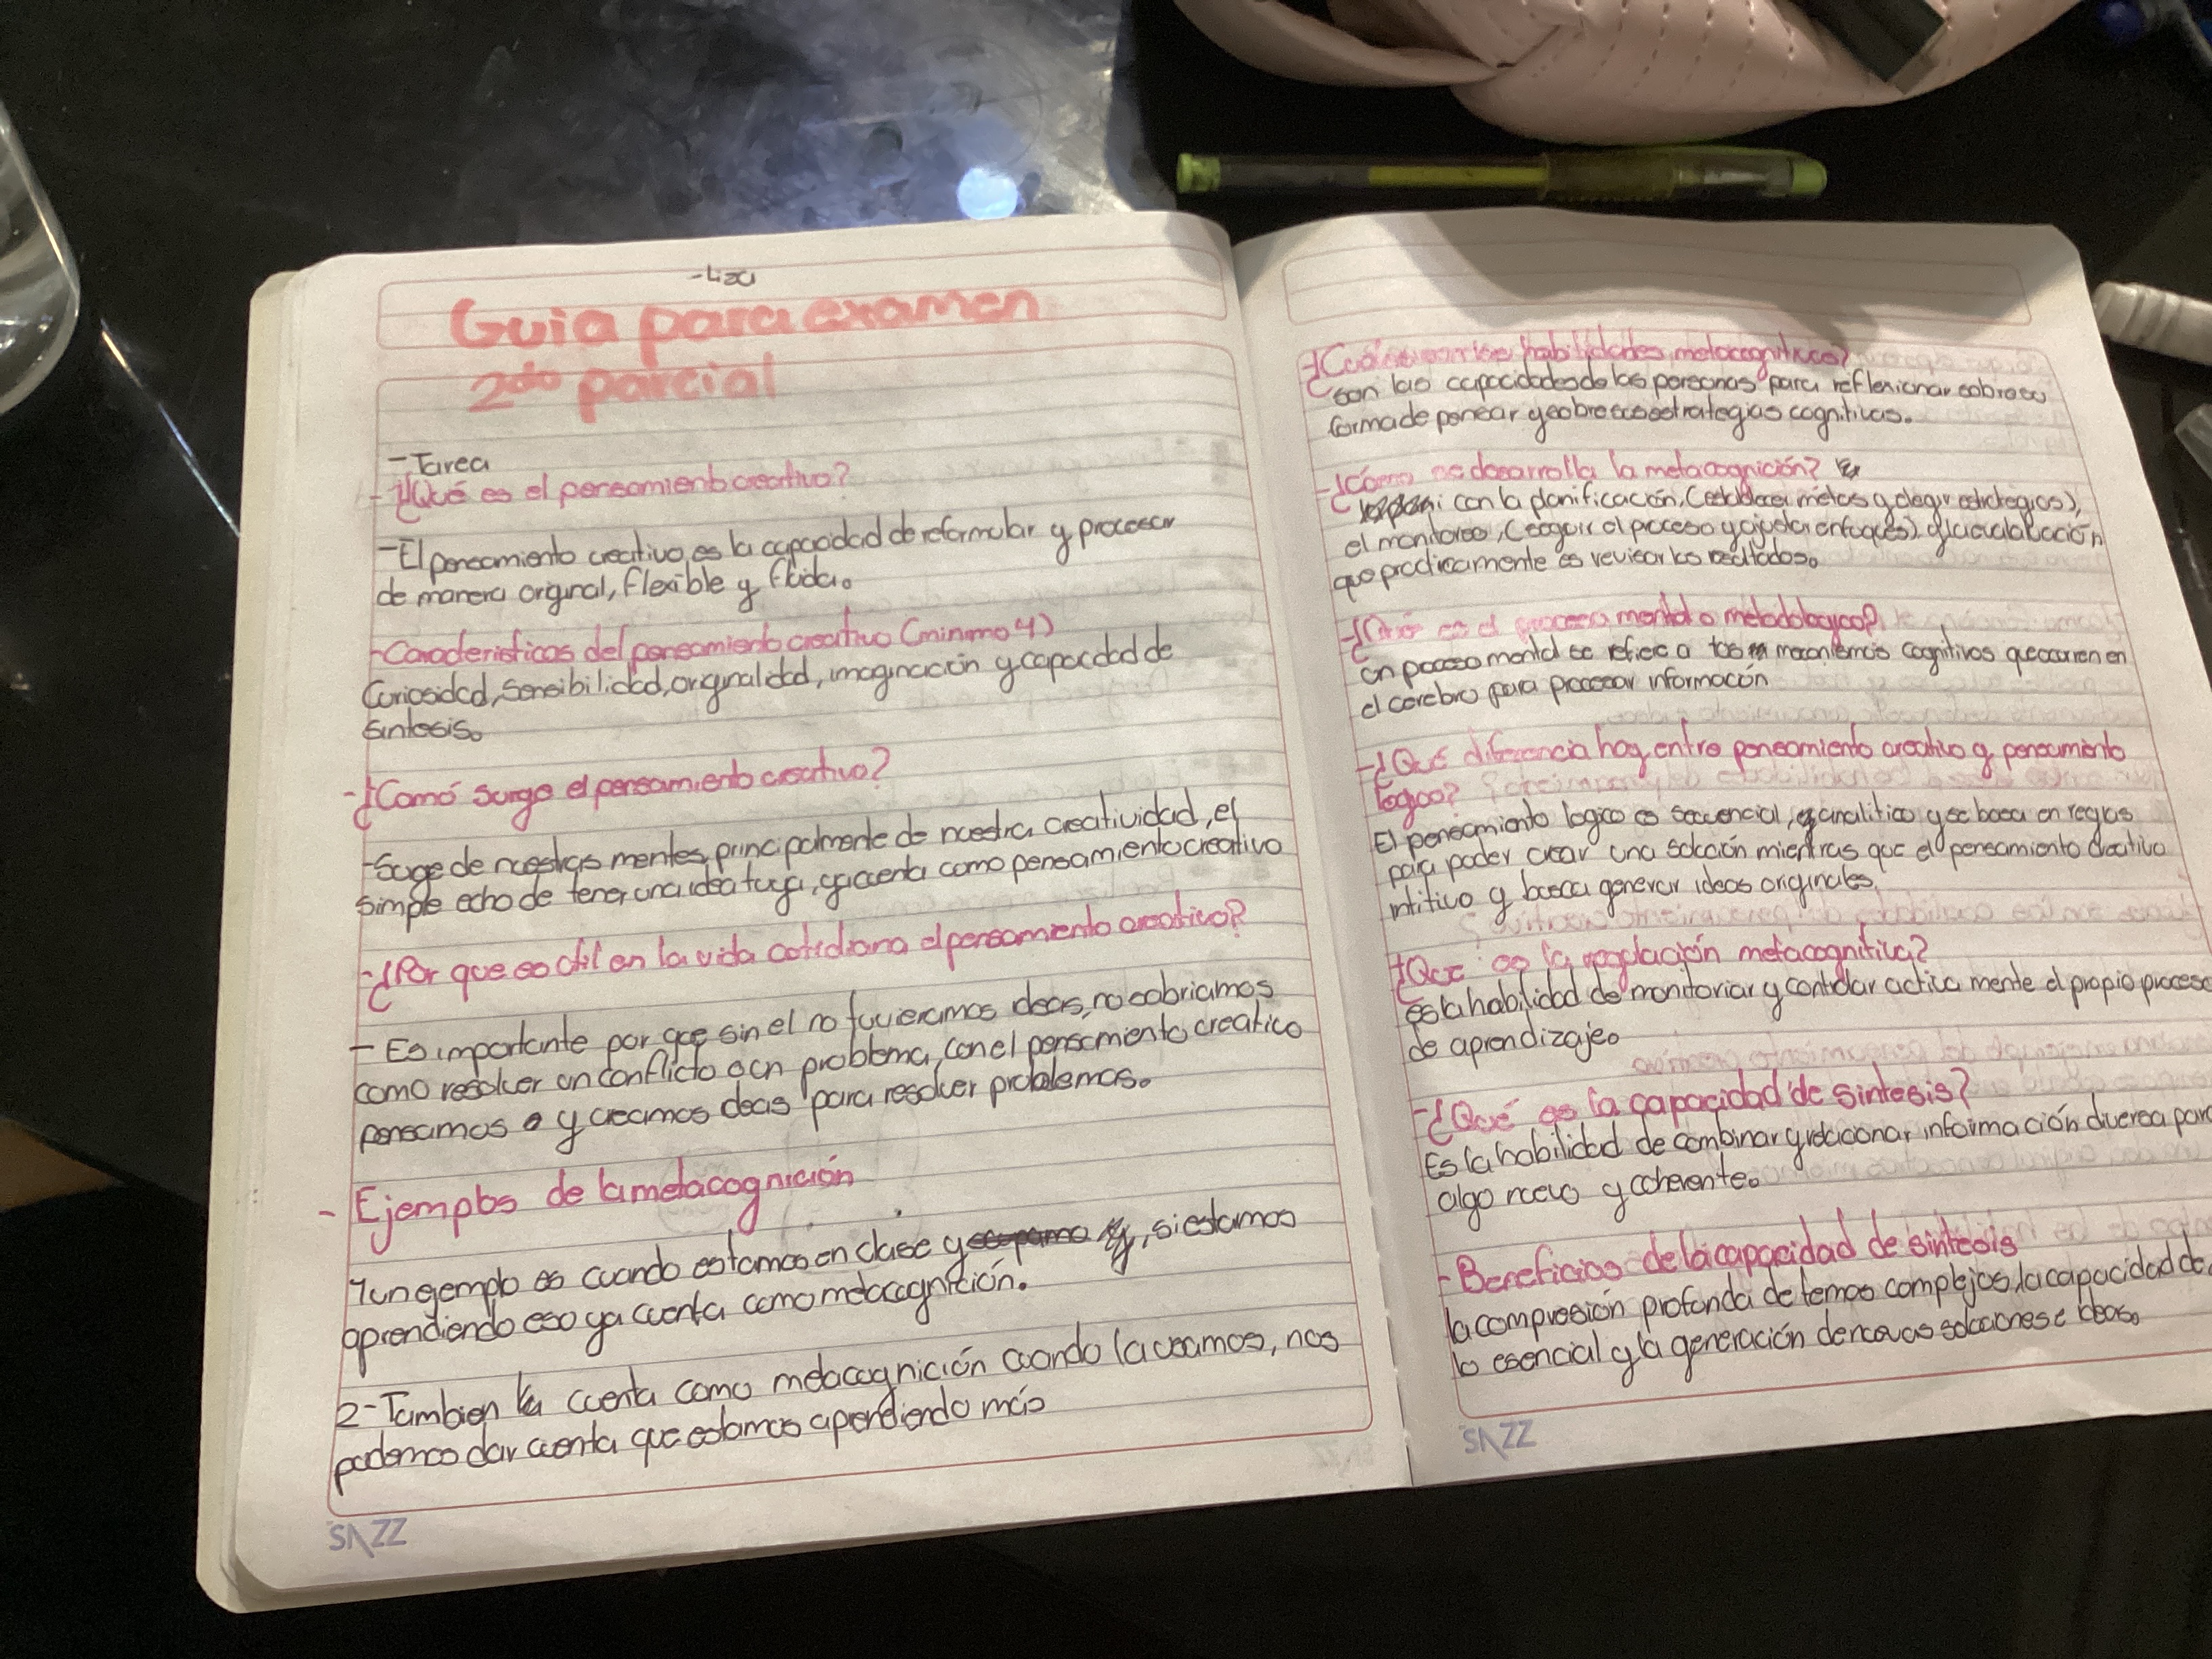 -Liza
Guia para examen
2do parcial
-Tarea
-¿Qué es el pensamiento creativo?
-El pensamiento creativo, es la capacidad de reformular y procesar
de manera original, flexible y fluida.
-Caracteristicas del pensamiento creativo (minimo 4)
Curiosidad, sensibilidad, originalidad, imaginación y capacidad de
sintesis.
-¿Comó surge el pensamiento creativo?
-Surge de nuestras mentes, principalmente de nuestra creatividad, el
simple echo de tener una idea tuya, ya cuenta como pensamiento creativo
-¿Por que es util en la vida cotidiana el pensamiento creativo?
-Es importante por que sin el no tuvieramos ideas, no sabriamos
como resolver un conflicto o un problema, con el pensamiento creatico
pensamos y creamos ideas para resolver problemas.
-Ejemplos de la metacognición
1 un ejemplo es cuando estamos en clase y, si estamos
aprendiendo eso ya cuenta como metacognición.
2-Tambien cuenta como metacognición cuando la usamos, nos
podemos dar cuenta que estamos aprendiendo más
SAZZ
-¿Cuáles son las habilidades metacognitivas?
son las capacidades de las personas para reflexionar sobre su
forma de pensar y sobre sus estrategias cognitivas.
-¿Cómo se desarrolla la metacognición?
con la planificación, (establecer métas y elegir estrategias),
el monitoreo, (seguir el proceso y ajustar enfoques) y la evaluación
que practicamente es revisar los resultados.
-¿Qué es el proceso mental o metodologico?
Un proceso mental se refiere a los mecanismos cognitivos que ocurren en
el cerebro para procesar información
-¿Qué diferencia hay entre pensamiento creativo y pensamiento
logico?
El pensamiento logico es secuencial, analitico y se basa en reglas
para poder crear una solución mientras que el pensamiento creativo
intitivo y busca generar ideas originales.
-¿Que es la regulación metacognitiva?
es la habilidad de monitoriar y controlar activa mente el propio proceso
de aprendizaje.
-¿Qué es la capacidad de sintesis?
Es la habilidad de combinar y relacionar información diversa para
algo nuevo y coherente.
-Beneficios de la capacidad de sintesis
la compresión profunda de temas complejos, la capacidad de
lo esencial y la generación de nuevas soluciones e ideas.
SAZZ